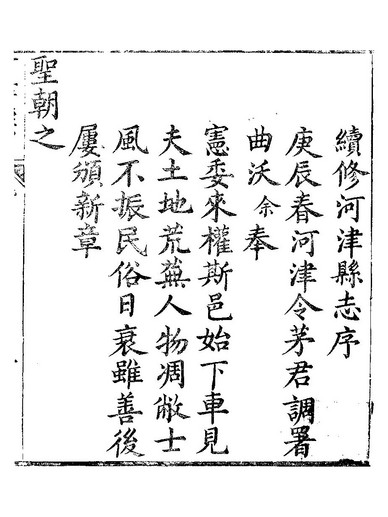 續修河津縣志序
庚辰春河津令茅君調署
曲沃余奉
憲委來權斯邑始下車見
夫土地荒蕪人物凋敝士
風不振民俗日衰雖善後
屢頒新章
聖朝之